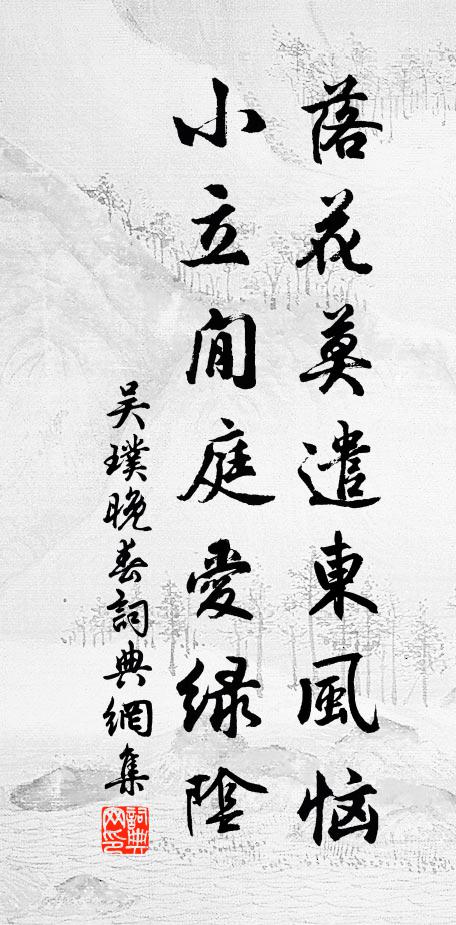 落花莫遣東風恼
小立閒庭愛绿陰
吴璞晚春詞典網集
詞典網印